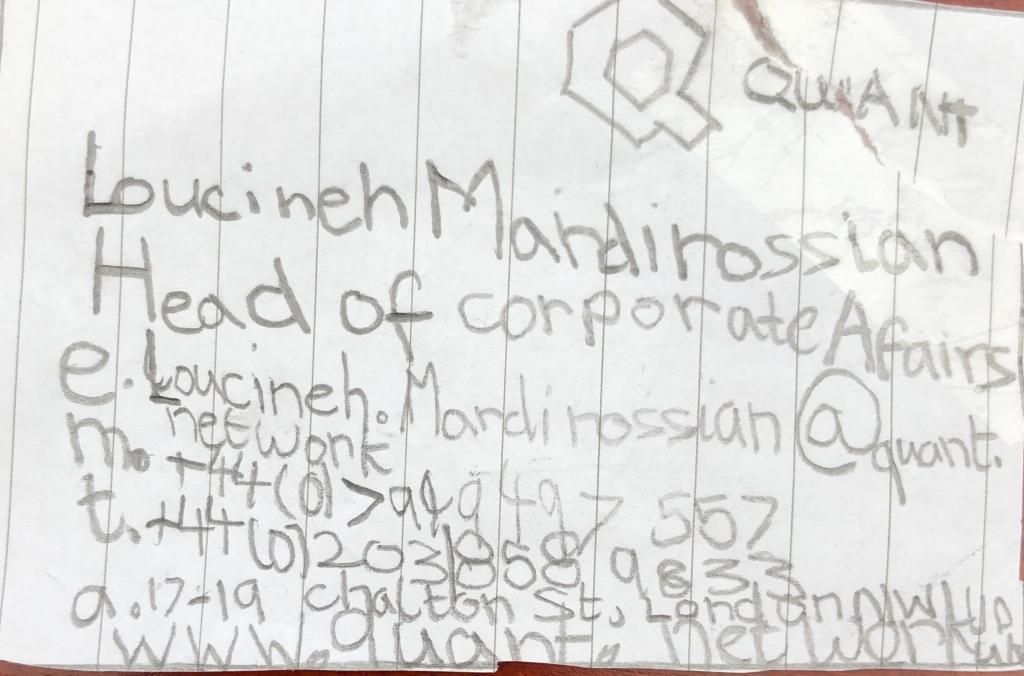 QUANT
Loucineh Mardirossian
Head of corporate Afairs
e. Loucineh.Mardirossian@quant.
network
m. +44(0)
557
t. +44(0)203 858 9833
a. 17-19 chalton St, London
www.quant.network